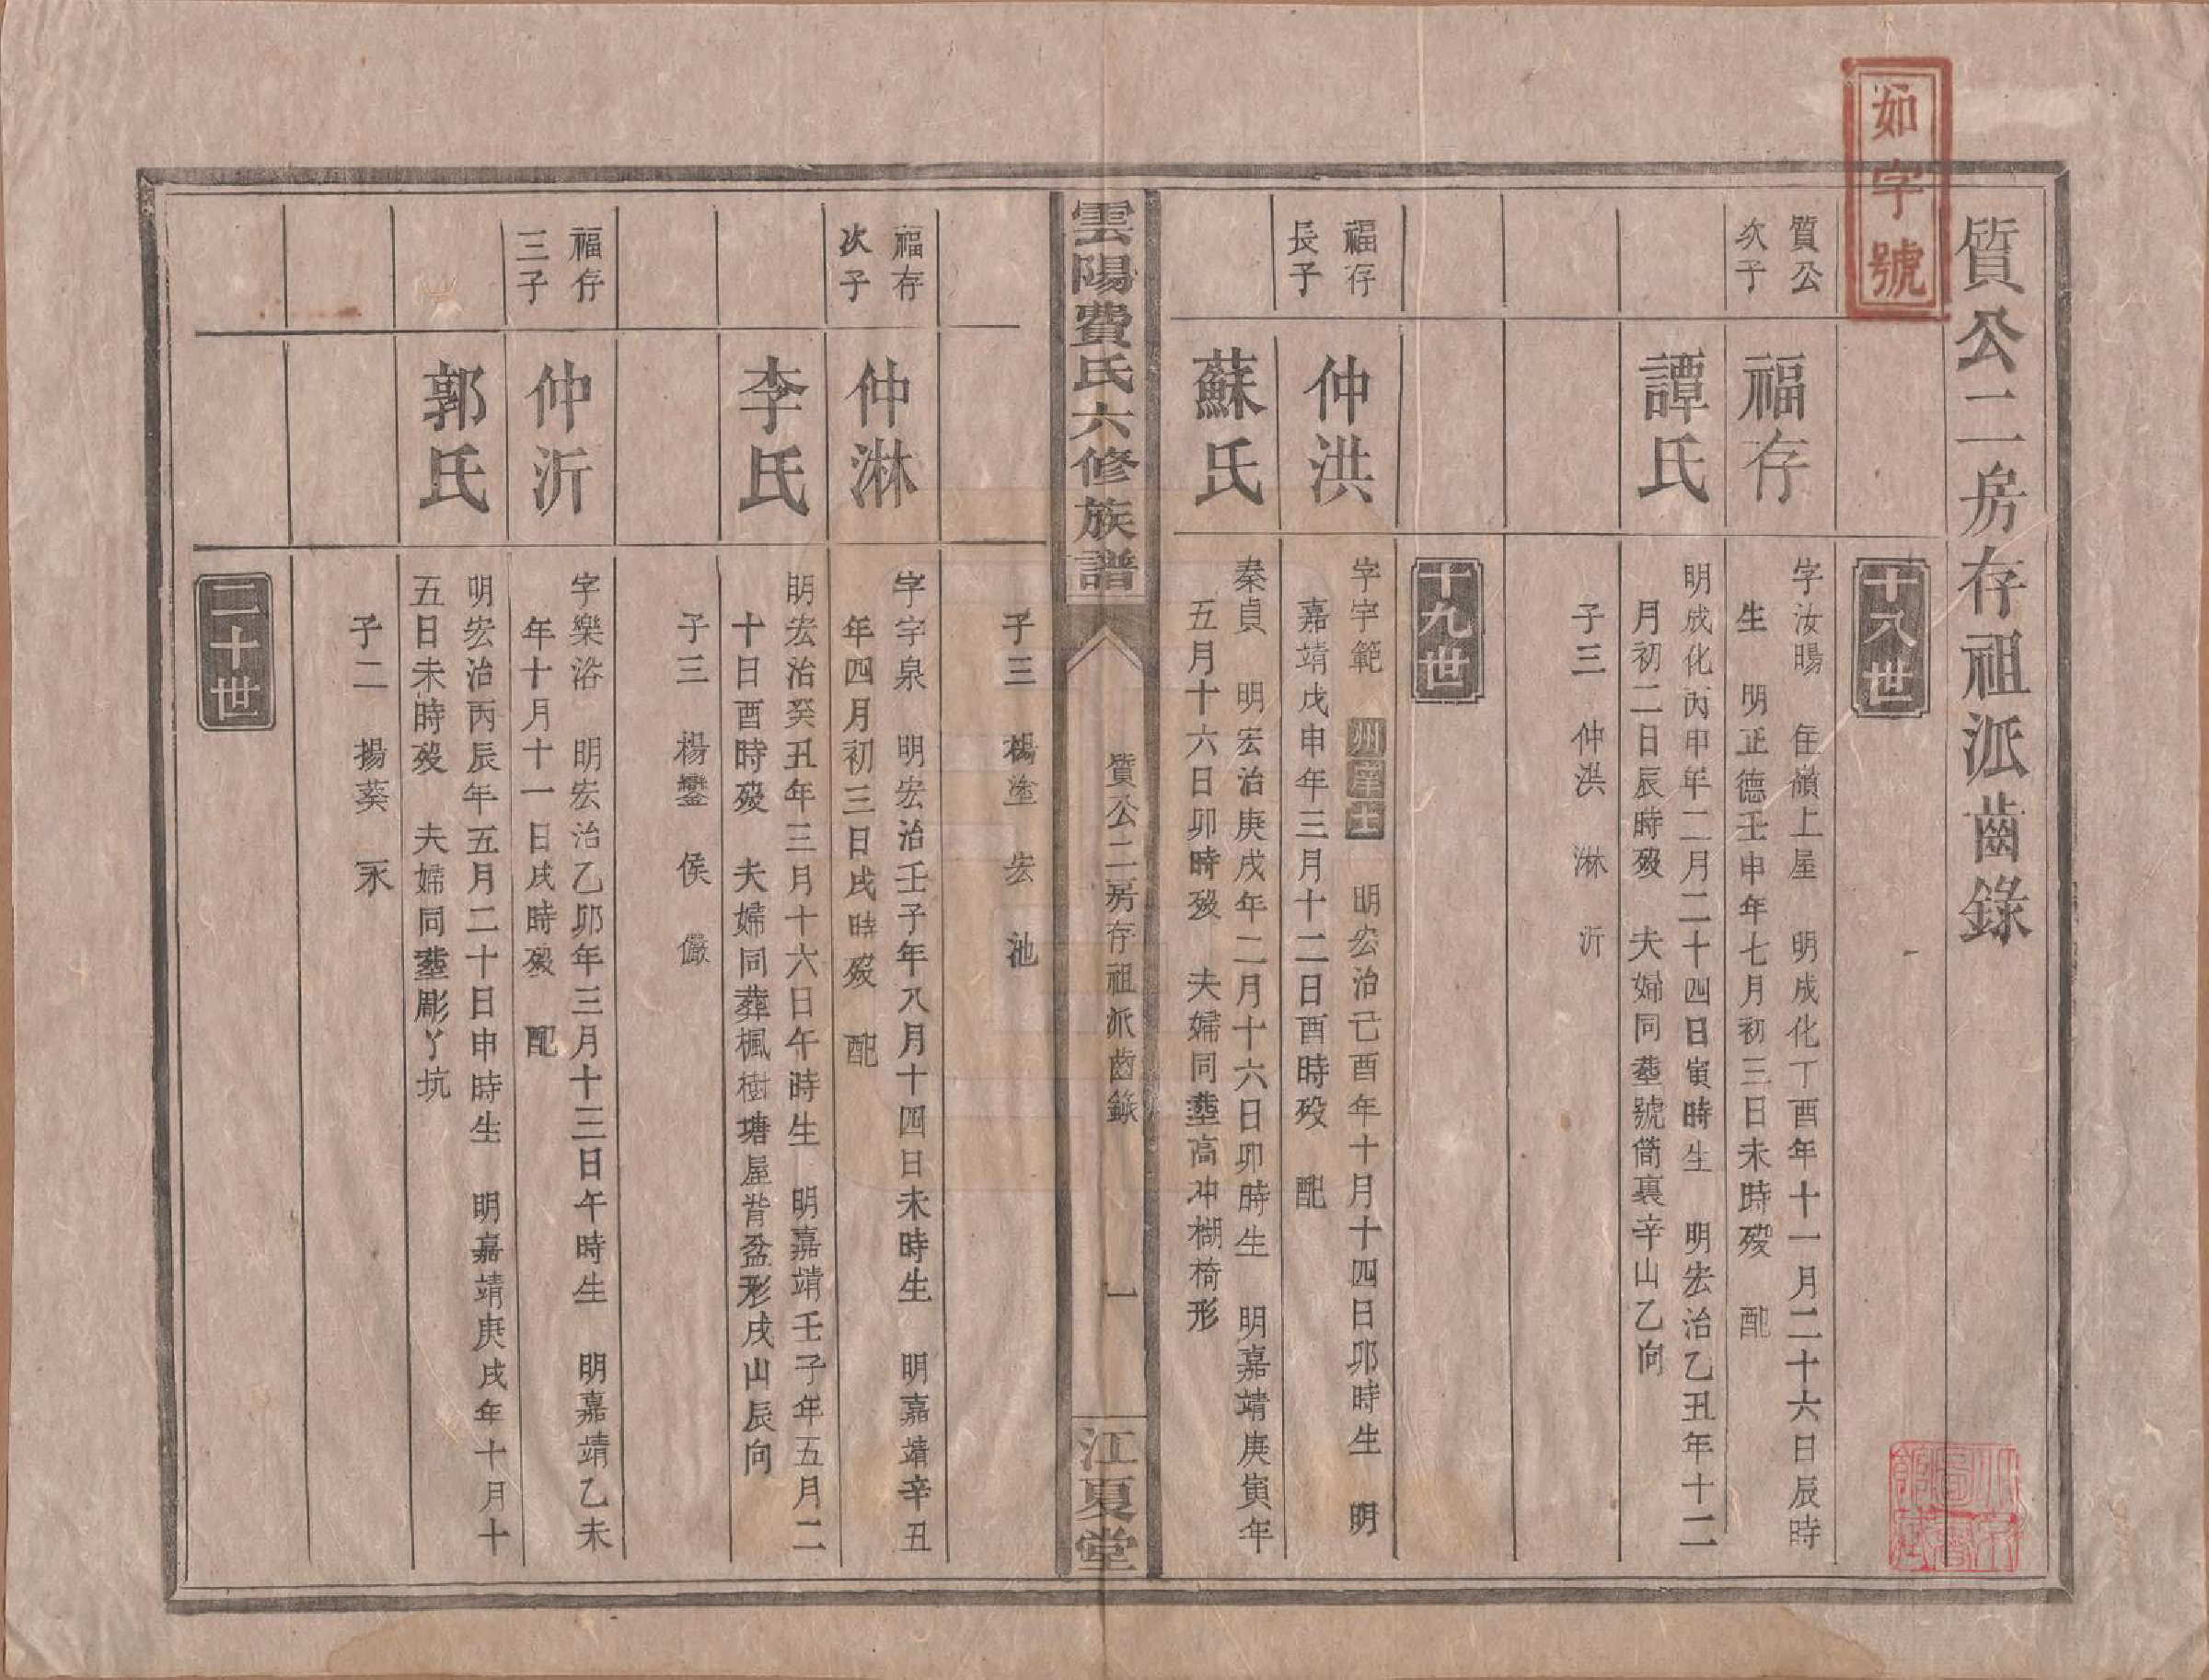 如字號
質公二房存祖派齒錄
十八世
質公
次子
福存
字汝暘 住嶺上屋 明成化丁酉年十一月二十六日辰時
生 明正德壬申年七月初三日未時歿 配
譚氏
明成化丙申年二月二十四日寅時生 明宏治乙丑年十二
月初二日辰時歿 夫婦同塟號筒裏辛山乙向
子三 仲洪 淋 沂
十九世
福存
長子
仲洪
字宇範 州庠士 明宏治己酉年十月十四日卯時生 明
嘉靖戊申年三月十二日酉時歿 配
蘇氏
秦貞 明宏治庚戌年二月十六日卯時生 明嘉靖庚寅年
五月十六日卯時歿 夫婦同塟高冲楜椅形
雲陽費氏六修族譜
質公二房存祖派齒錄
一
江夏堂
子三 楊塗 宏 池
福存
次子
仲淋
字宇泉 明宏治壬子年八月十四日未時生 明嘉靖辛丑
年四月初三日戌時歿 配
李氏
明宏治癸丑年三月十六日午時生 明嘉靖壬子年五月二
十日酉時歿 夫婦同葬楓樹塘屋背盆形戌山辰向
子三 楊鑾 侯 儼
福存
三子
仲沂
字樂浴 明宏治乙卯年三月十三日午時生 明嘉靖乙未
年十月十一日戌時歿 配
郭氏
明宏治丙辰年五月二十日申時生 明嘉靖庚戌年十月十
五日未時歿 夫婦同塟彫丫坑
子二 揚葵 永
二十世